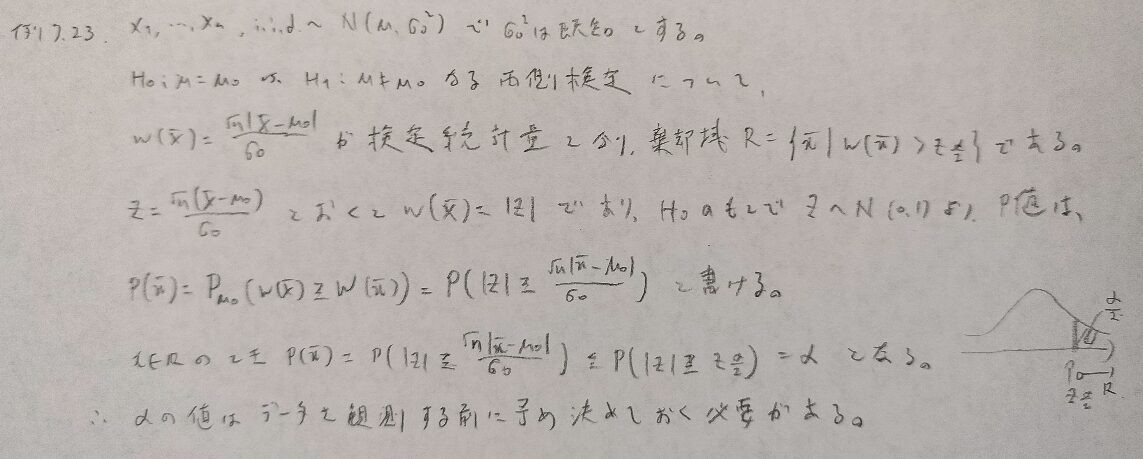 例7.23. X₁, …, Xₙ, i.i.d. ~ N(μ, σ₀²) で σ₀² は既知とする。
H₀: μ = μ₀ vs H₁: μ ≠ μ₀ なる両側検定について、
W(X̄) = √n|X̄ - μ₀| / σ₀ が検定統計量となり、棄却域 R = {x̄ | W(x̄) > z_{α/2}} である。
Z = √n(X̄ - μ₀) / σ₀ とおくと W(X̄) = |Z| であり、H₀ のもとで Z ~ N(0,1) より、P値は、
P(x̄) = P_{μ₀}(W(X̄) ≧ W(x̄)) = P(|Z| ≧ √n|x̄ - μ₀| / σ₀) と書ける。
x∈R のとき P(x̄) = P(|Z| ≧ √n|x̄ - μ₀| / σ₀) ≦ P(|Z| ≧ z_{α/2}) = α となる。
∴ α の値はデータを観測する前に予め決めておく必要がある。
α/2
z_{α/2} R